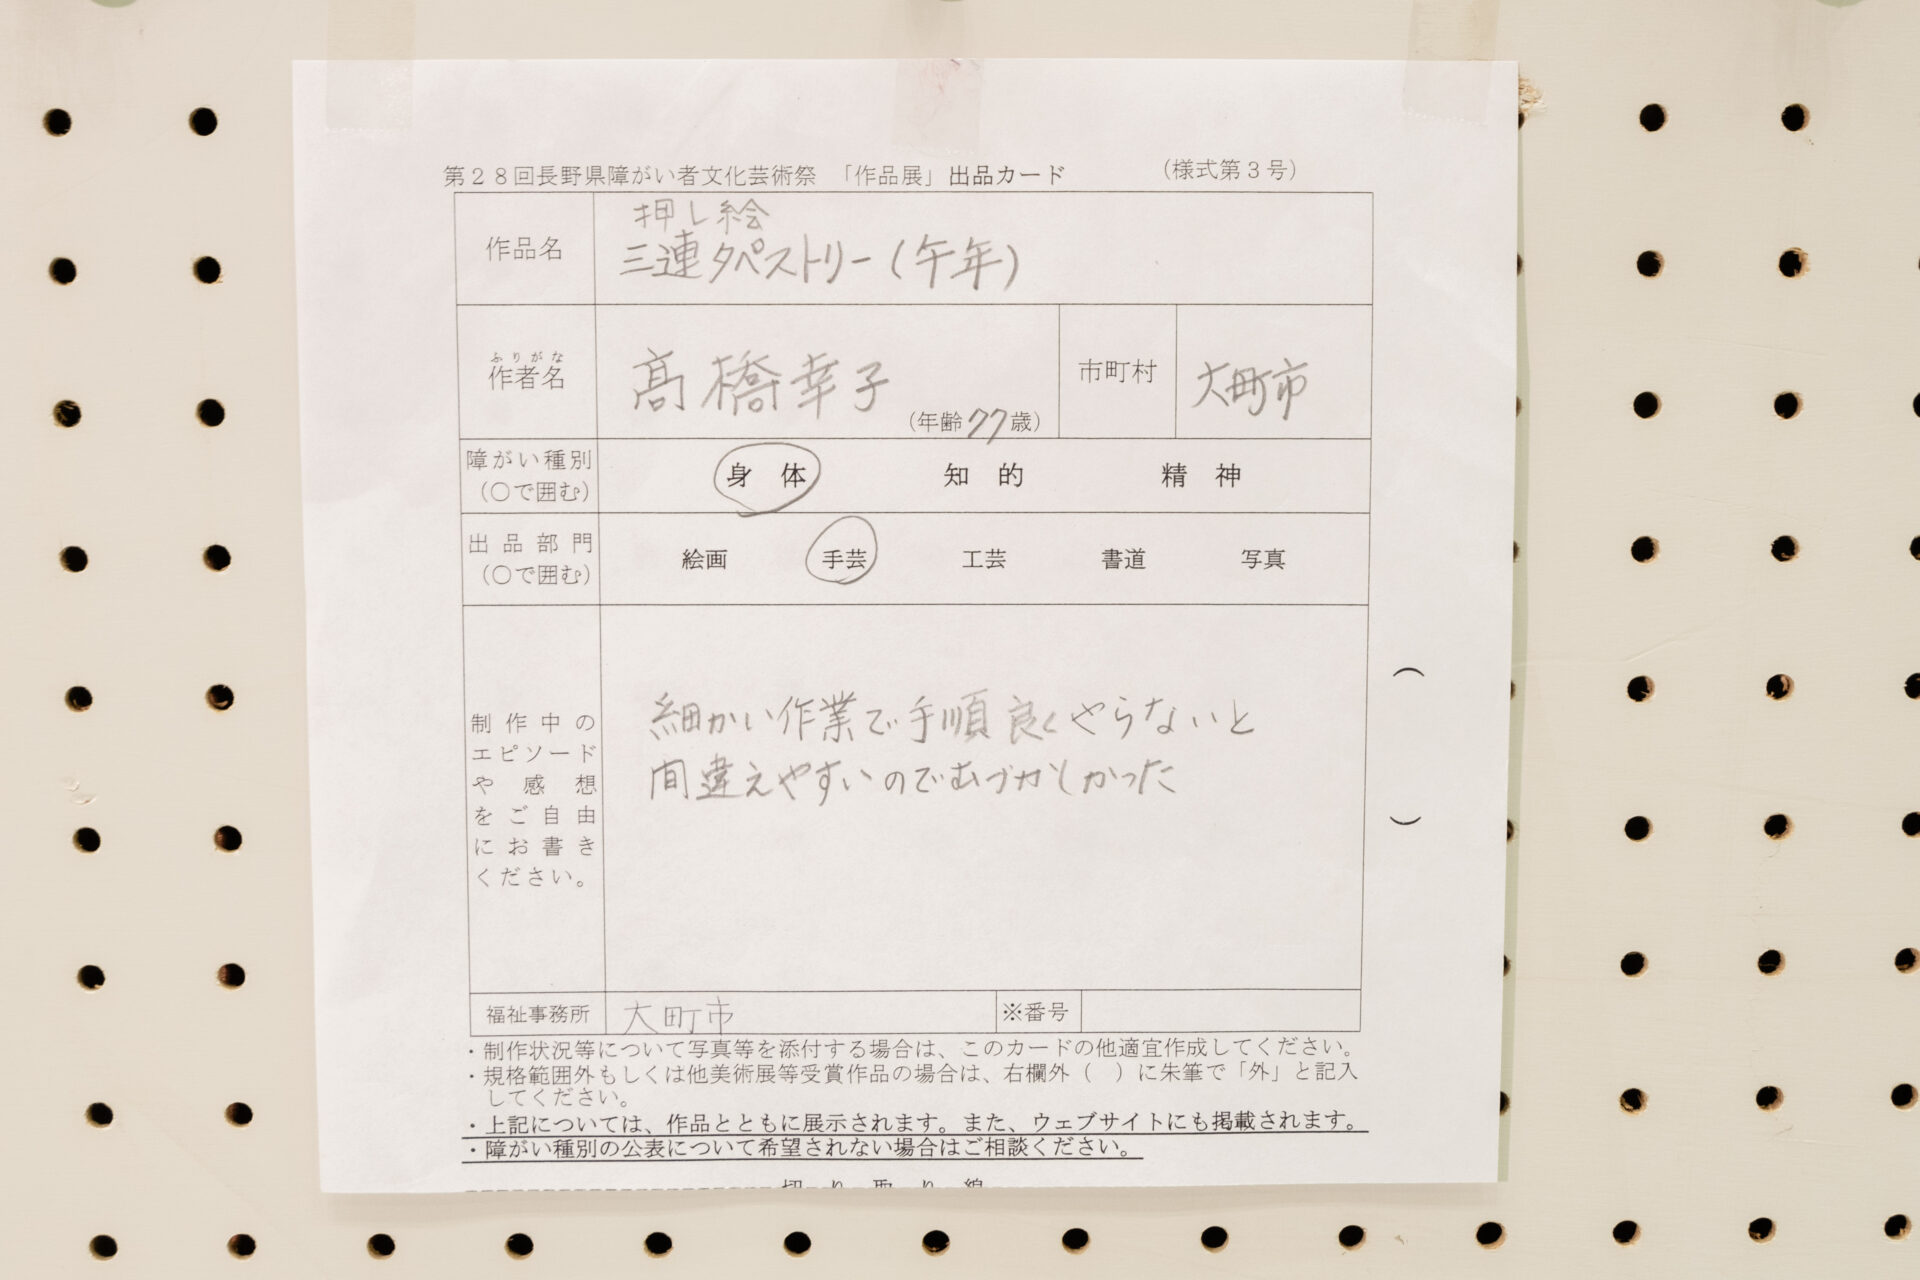 第28回長野県障がい者文化芸術祭 「作品展」出品カード (様式第3号)
作品名
押し絵
三連タペストリー(午年)
ふりがな
作者名
髙橋幸子
(年齢77歳)
市町村
大町市
障がい種別
(○で囲む)
身 体 知 的 精 神
出品部門
(○で囲む)
絵画 手芸 工芸 書道 写真
制作中の
エピソード
や感想
をご自由
にお書き
ください。
細かい作業で手順良くやらないと
間違えやすいのでむづかしかった
( )
福祉事務所
大町市
※番号
・制作状況等について写真等を添付する場合は、このカードの他適宜作成してください。
・規格範囲外もしくは他美術展等受賞作品の場合は、右欄外( )に朱筆で「外」と記入
してください。
・上記については、作品とともに展示されます。また、ウェブサイトにも掲載されます。
・障がい種別の公表について希望されない場合はご相談ください。
切 り 取 り 線